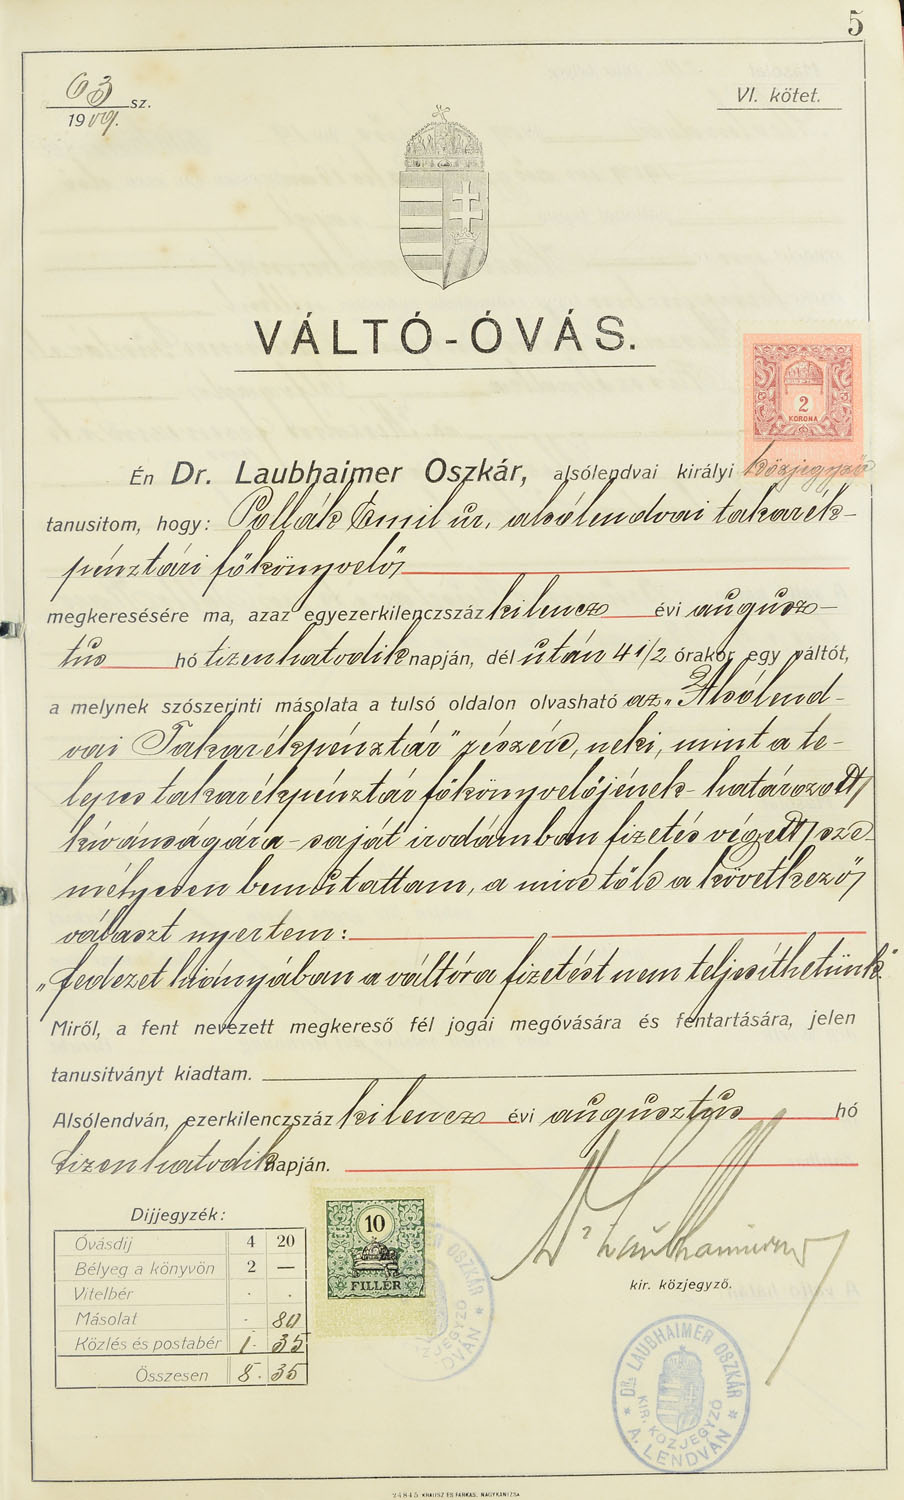 5
63 sz.
1909.
VI. kötet.
VÁLTÓ-ÓVÁS.
2
KORONA
Én Dr. Laubhaimer Oszkár, alsólendvai királyi közjegyző
tanusitom, hogy: Pollák Emil ur, alsólendvai takarék-
pénztári főkönyvelő
megkeresésére ma, azaz egyezerkilenczszáz kilencz évi augusz-
tus hó tizenhatodik napján, dél után 4 1/2 órakor egy váltót,
a melynek szószerinti másolata a tulsó oldalon olvasható az „Alsólend-
vai Takarékpénztár" részére, neki, mint a te-
lepes takarékpénztár főkönyvelőjének - határozott
kívánságára - saját irodámban fizetés végett sze-
mélyesen bemutattam, a mire tőle a következő
választ nyertem:
„fedezet hiányában a váltóra fizetést nem teljesíthetünk."
Miről, a fent nevezett megkereső fél jogai megóvására és fentartására, jelen
tanusitványt kiadtam.
Alsólendván, ezerkilenczszáz kilencz évi augusztus hó
tizenhatodik napján.
Dr Laubhaimer
kir. közjegyző.
Dijjegyzék:
Óvásdij 4 20
Bélyeg a könyvön 2 —
Vitelbér . .
Másolat . 80
Közlés és postabér 1. 35
Összesen 8. 35
10
FILLÉR
DR. LAUBHAIMER OSZKÁR
KIR. KÖZJEGYZŐ
A. LENDVÁN
24845 KRAUSZ ÉS FARKAS, NAGYKANIZSA